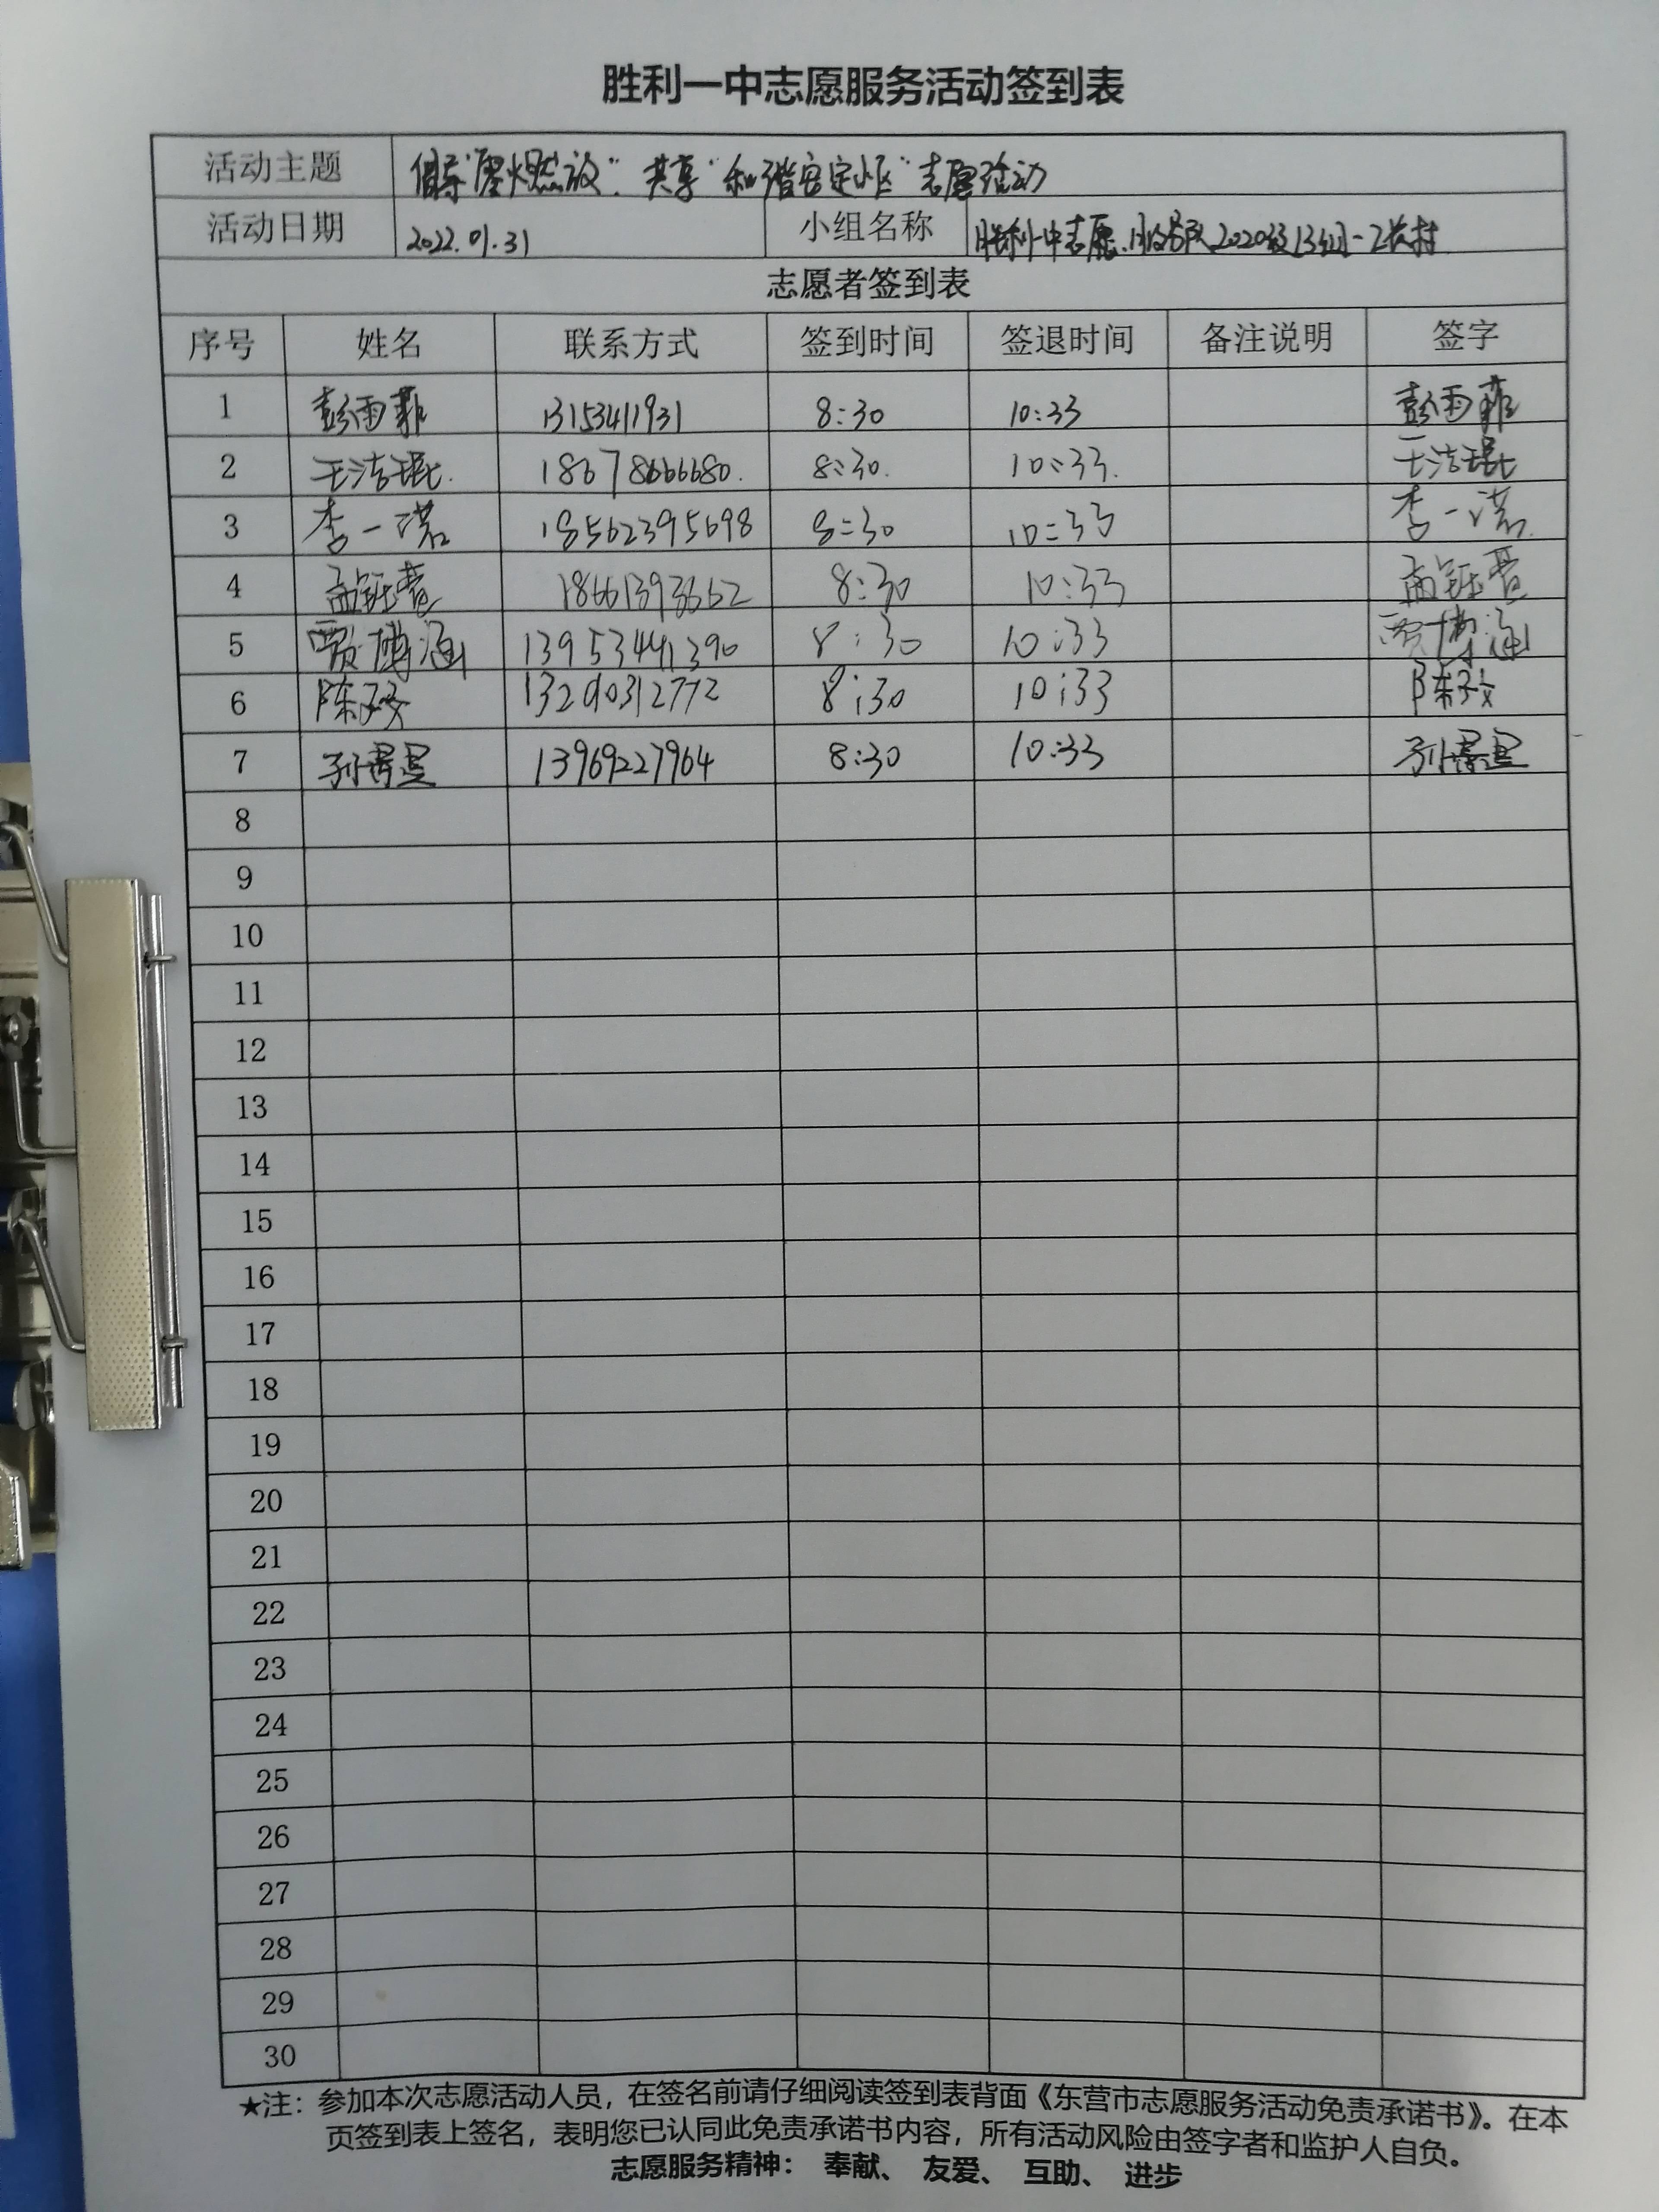 胜利一中志愿服务活动签到表
活动主题 倡导"零火燃放"，共享"和谐安定小区"志愿活动
活动日期 2022.01.31 小组名称 胜利一中志愿服务队2020级13组
志愿者签到表
序号 姓名 联系方式 签到时间 签退时间 备注说明 签字
1 彭雨菲 13153411931 8:30 10:33 彭雨菲
2 王洁琨 18678666680 8:30 10:33 王洁琨
3 李一诺 18562395698 8:30 10:33 李一诺
4 8:30 10:33
5 贾博涵 13953441390 8:30 10:33 贾博涵
6 8:30 10:33
7 13969227964 8:30 10:33
8
9
10
11
12
13
14
15
16
17
18
19
20
21
22
23
24
25
26
27
28
29
30
★注：参加本次志愿活动人员，在签名前请仔细阅读签到表背面《东营市志愿服务活动免责承诺书》。在本
页签到表上签名，表明您已认同此免责承诺书内容，所有活动风险由签字者和监护人自负。
志愿服务精神： 奉献、 友爱、 互助、 进步